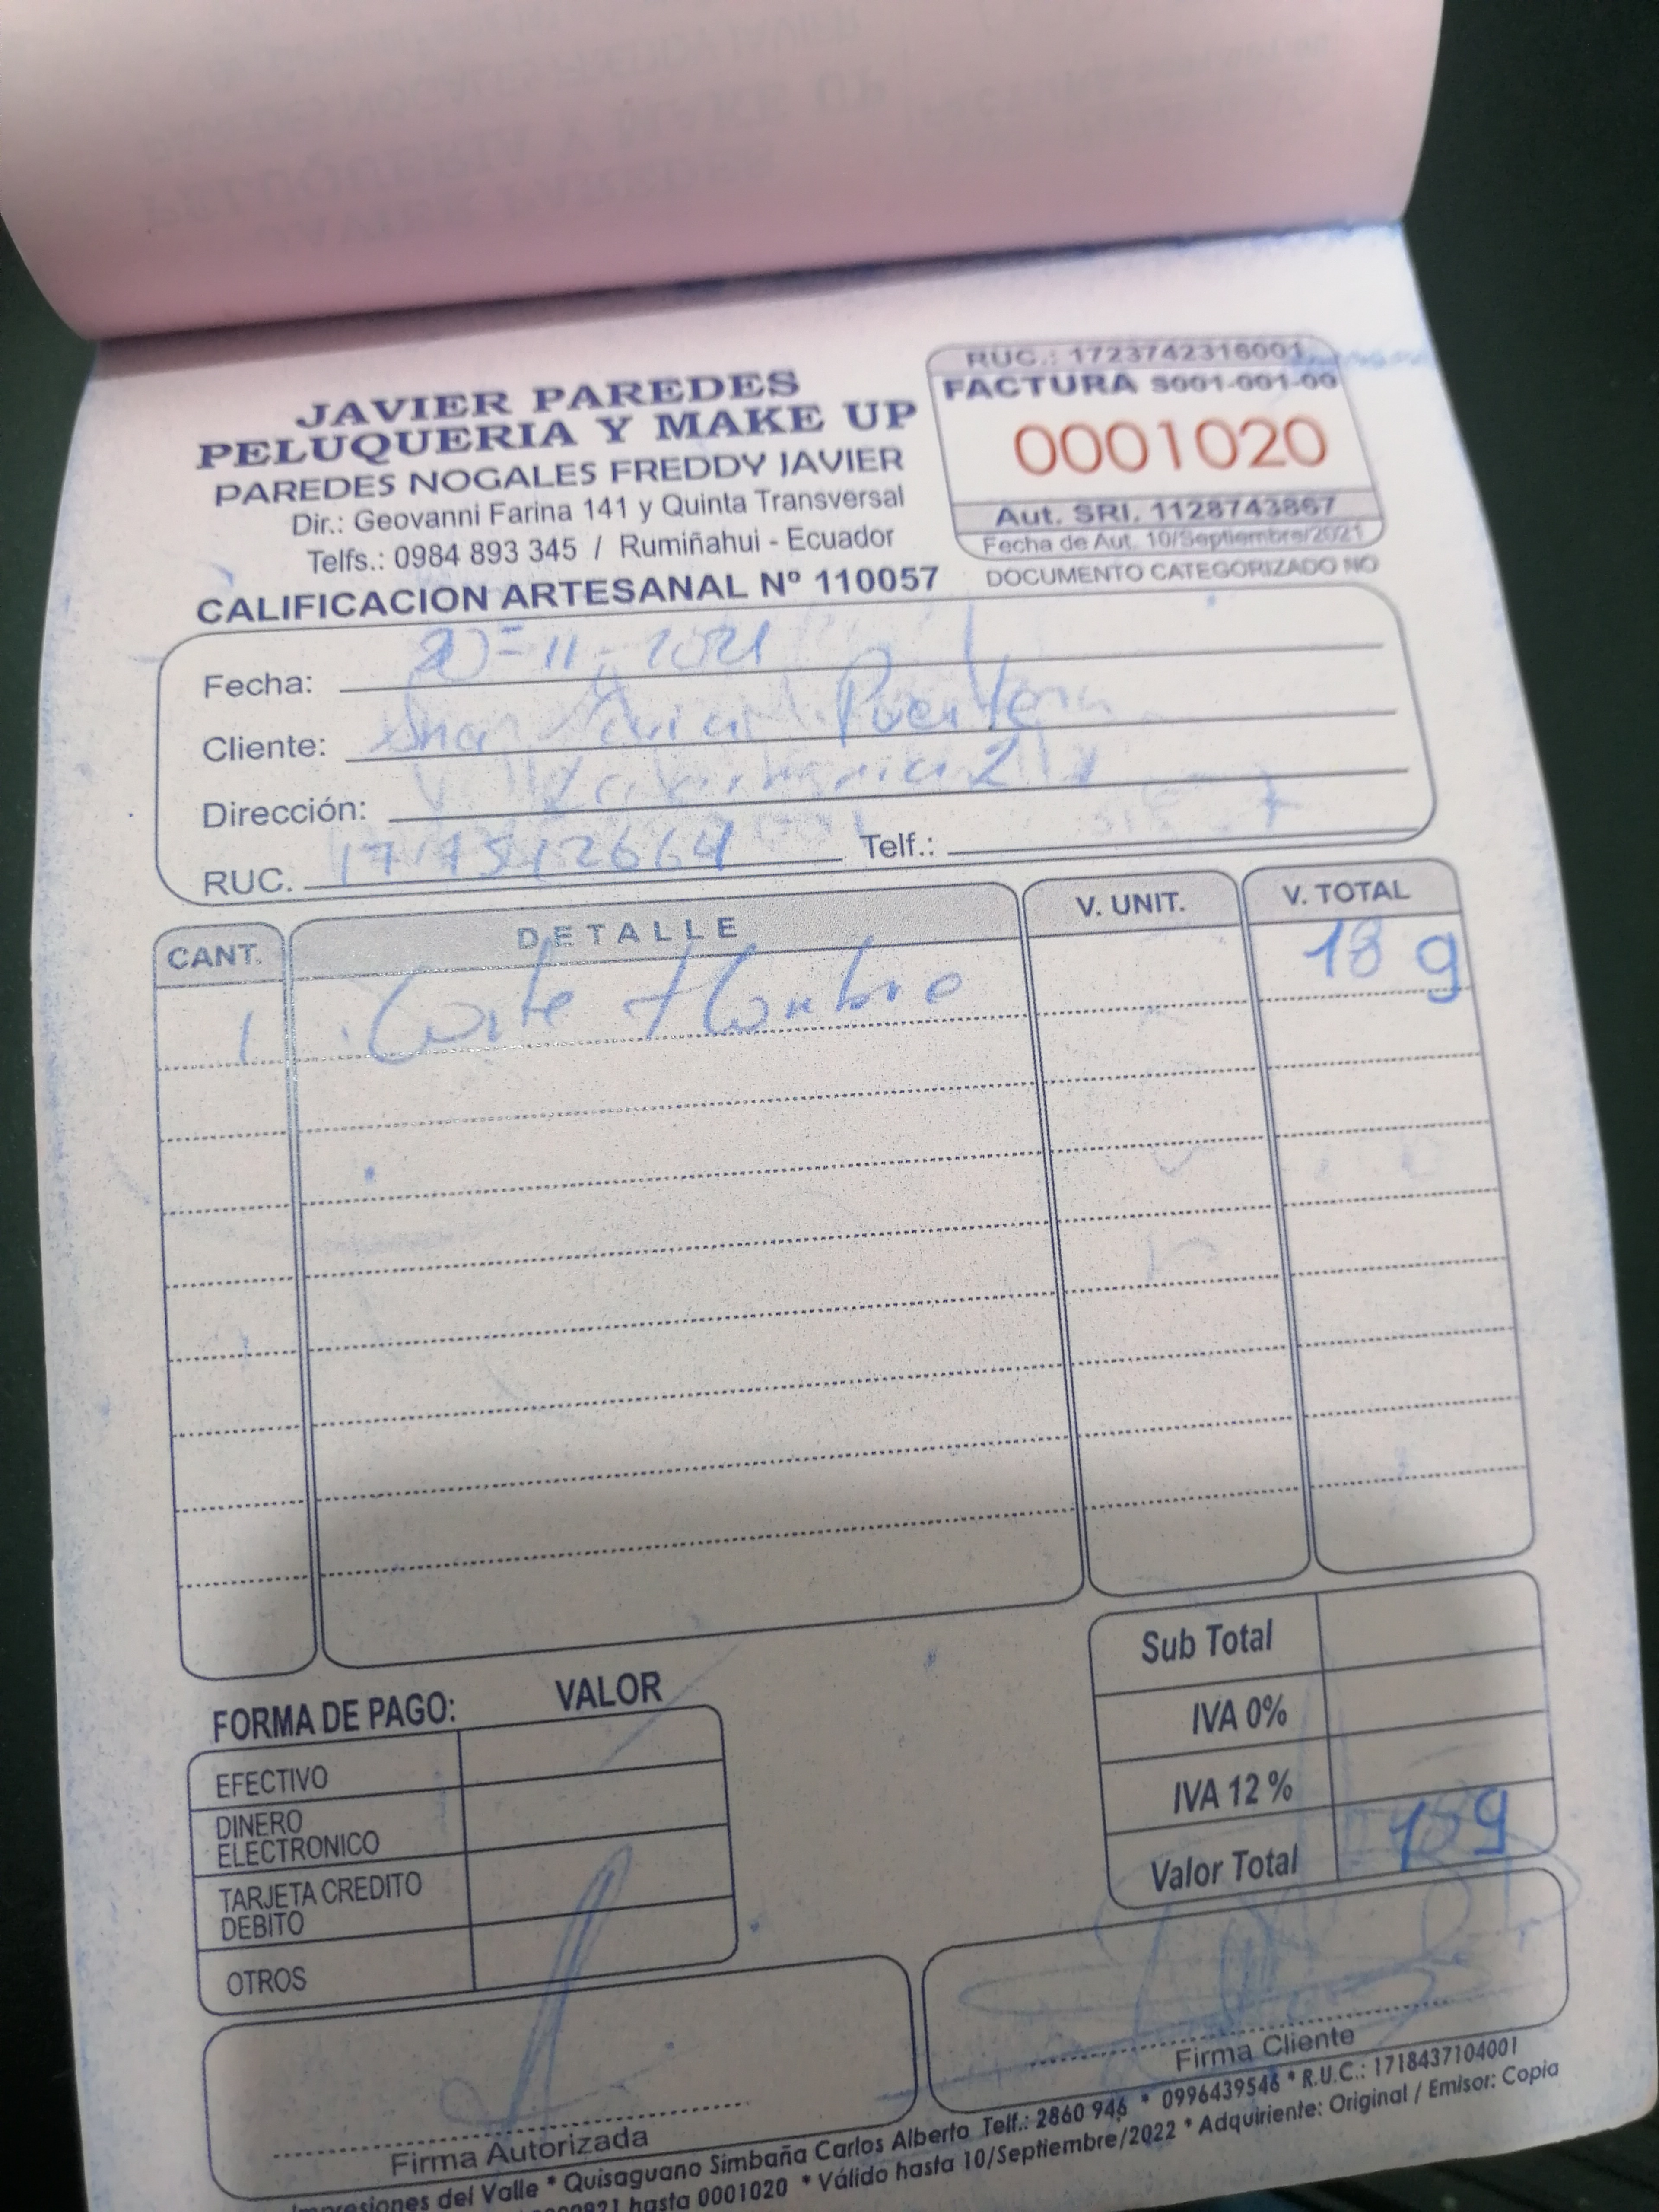 JAVIER PAREDES
PELUQUERIA Y MAKE UP
PAREDES NOGALES FREDDY JAVIER
Dir.: Geovanni Farina 141 y Quinta Transversal
Telfs.: 0984 893 345 / Rumiñahui - Ecuador
CALIFICACION ARTESANAL Nº 110057
RUC.: 1723742316001
FACTURA S001-001-00
0001020
Aut. SRI. 1128743867
Fecha de Aut. 10/Septiembre/2021
DOCUMENTO CATEGORIZADO NO
Fecha: 20-11-2021
Cliente: Puente
Dirección:
RUC. Telf.:
CANT. DETALLE V. UNIT. V. TOTAL
1 Corte Hombre
Sub Total
IVA 0%
IVA 12 %
Valor Total
FORMA DE PAGO: VALOR
EFECTIVO
DINERO
ELECTRONICO
TARJETA CREDITO
DEBITO
OTROS
Firma Autorizada
Firma Cliente
Impresiones del Valle * Quisaguano Simbaña Carlos Alberto Telf.: 2860 946 * 0996439546 * R.U.C.: 1718437104001
hasta 0001020 * Válido hasta 10/Septiembre/2022 * Adquiriente: Original / Emisor: Copia